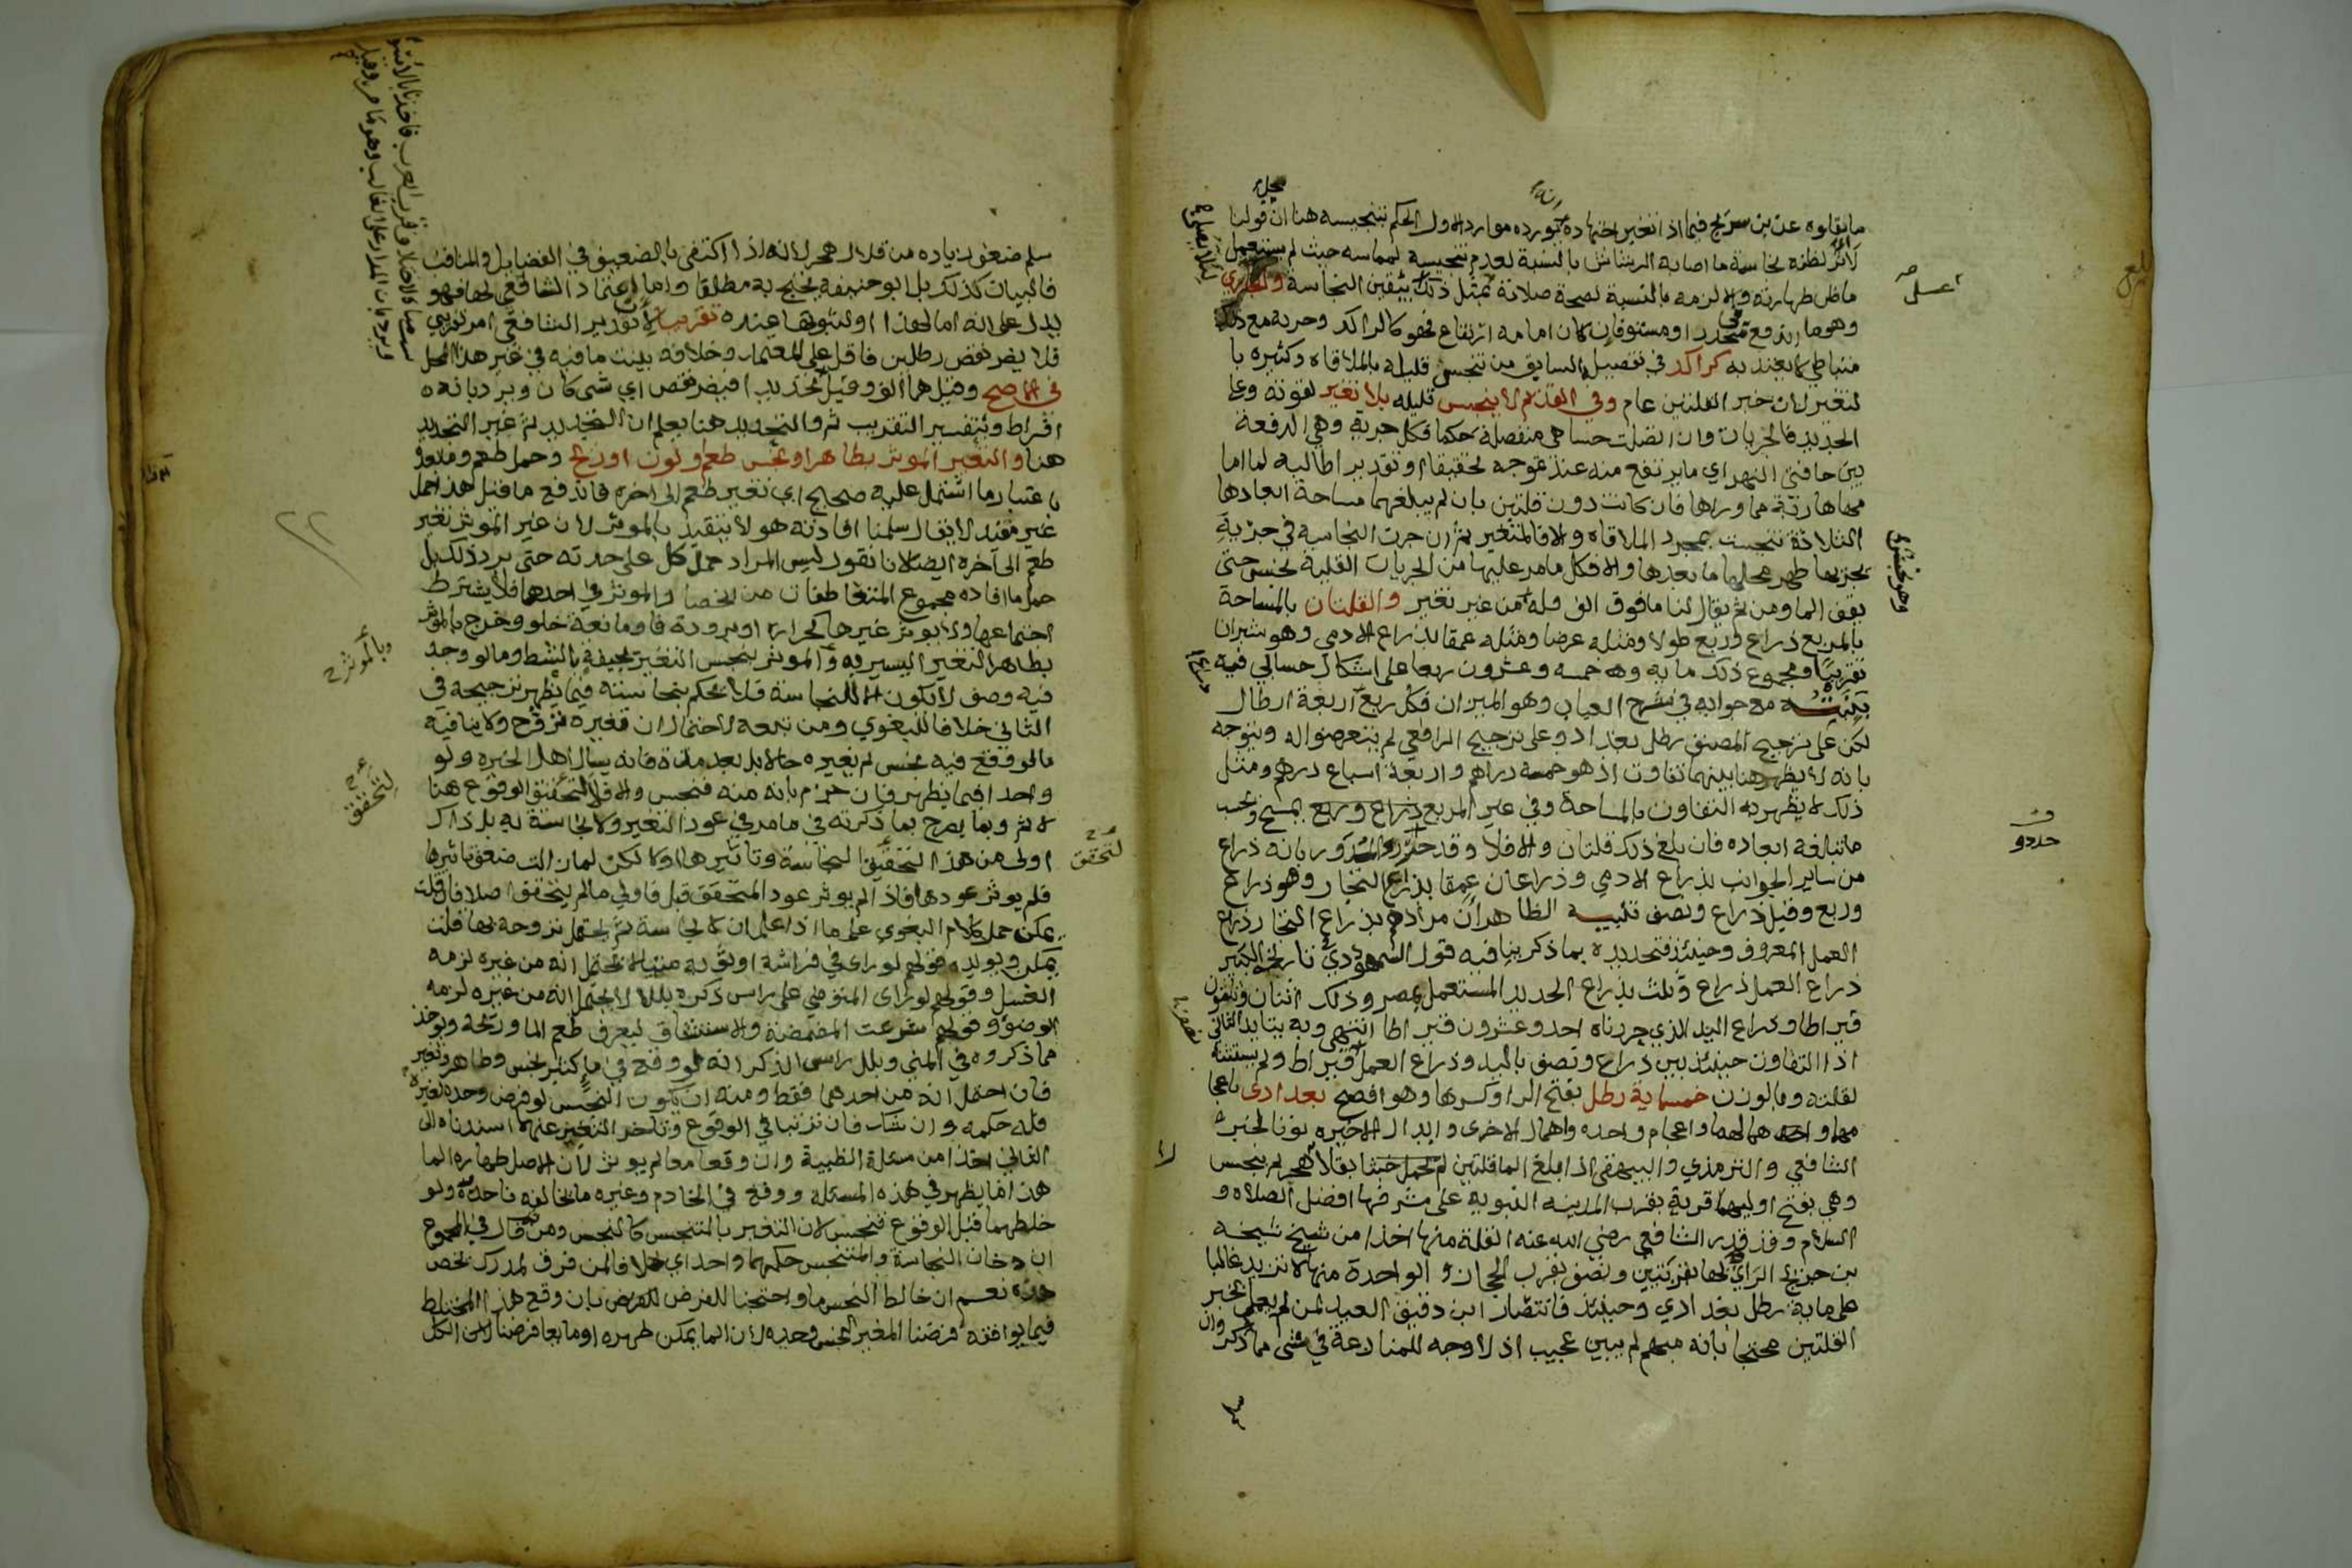 ما نقلوه عن بن سريج فيما اذا تغير اجتهاده بمورده موارد الاول الحكم بتنجيسه هنا ان قولنا
لا اثر لظنه نجاسة ما اصابه الرشاش بالنسبة لعدم تنجيسه لمماسه حيث لم يستعمل
ما ظن طهارته والا لزمه بالنسبة لصحة صلاته تمثل ذلك بتيقين النجاسة والجاري
وهو ما اندفع في منحدر او مستو فان كان امامه ارتفاع فهو كالراكد وجريه مع ذلك
متباطي لا يعتد به كراكد في تفصيله السابق من تنجس قليله بالملاقاه وكثيره با
لتغير لان خبر القلتين عام وفي القديم لا ينجس قليله بلا تغير لقوته وعلى
الجديد فالجريات وان اتصلت حسا هي منفصلة حكما فكل جرية وهي الدفعة
بين حافتي النهر اي ما يرتفع منه عند تموجه تحقيقا او تقديرا طالبة لما اما
مها هاربة مما وراها فان كانت دون قلتين بان لم يبلغهما مساحة ابعادها
الثلاثة تنجست بمجرد الملاقاه والا فالمتغير ثم ان جرت النجاسة في جرية
بجريها طهر محلها ما بعدها والا فكل ما مر عليها من الجريات القليلة نجس حتى
يقف الما ومن ثم يقال لنا ما فوق الف قلة من غير تغير والقلتان بالمساحة
بالمربع ذراع وربع طولا ومثله عرضا ومثله عمقا بذراع الادمي وهو شبران
تقريبا ومجموع ذلك مايه وهه خمسه وعشرون ربعا على اشكال حسابي فيه
بينته مع جوابه في شرح العباب وهو الميزان فكل ربع اربعة ارطال
لكن على ترجيح المصنف رطل بغداد وعلى ترجيح الرافعي لم يتعرضوا له ويوجه
بانه لا يظهر هنا بينهما تفاوت اذ هو خمسة دراهم واربعة اسباع درهم ومثل
ذلك لا يظهر به التفاوت بالمساحة وفي غير المربع ذراع وربع يمسح ويحسب
ما تبلغه ابعاده فان بلغ ذلك قلتان والا فلا وقد حددوا المدور بانه ذراع
من ساير الجوانب بذراع الادمي وذراعان عمقا بذراع النجار وهو ذراع
وربع وقيل ذراع ونصف تنبيه الظاهر ان مرادهم بذراع النجار ذراع
العمل المعروف وحينئذ فتحديده بما ذكر ينافيه قول السمهودي في تاريخه الكبير
ذراع العمل ذراع وثلث بذراع الحديد المستعمل بمصر وذلك اثنان وثلثون
قيراطا وذراع اليد الذي جربناه احد وعشرون قيراطا انتهى وبه يتايد الثاني
اذ التفاوت حينئذ بين ذراع ونصف باليد وذراع العمل قيراط ولم يستثنه
لقلته وبالوزن خمسماية رطل بفتح الرا وكسرها وهو افصح بغدادي باعجا
مهما واهمالهما واعجام واحده واهمال الاخرى وابدال الاخيره نونا لخبر
الشافعي والترمذي والبيهقي اذا بلغ الما قلتين لم يحمل خبثا بقلال هجر لم ينجس
وهي بفتح اوليهما قرية بقرب المدينه النبويه على مشرفها افضل الصلاه و
السلام وقد قدر الشافعي رضي الله عنه القلة منها اخذا من شيخ شيخه
بن جريج الراي لها بقربتين ونصف بقرب الحجاز والواحدة منها لا تزيد غالبا
على ماية رطل بغدادي وحينئذ فانتصار ابن دقيق العيد لمن لم يعمل بخبر
القلتين محتجا بانه مبهم لم يبين عجيب اذ لا وجه للمنازعة في شى مما ذكر وان
سلم ضعف زياده من قلال هجر لانه اذا اكتفى بالضعيف في الفضايل والمناقب
فالبيان كذلك بل ابو حنيفة يحتج به مطلقا واما اعتماد الشافعي لها فهو
يدل على انه اما لهذا او لثبوتها عنده تقريبا لان تقدير الشافعي امر تقريبي
فلا يضر نقص رطلين فاقل على المعتمد وخلافه بينت ما فيه في غير هذا المحل
في الاصح وقيل هما الف وقيل تحديدا فيضر نقص اي شى كان ويرد بانه
افراط وبتفسير التقريب ثم والتحديد هنا يعلم ان التحديد ثم غير التحديد
هنا والتغير الموثر بطاهر او نجس طعم او لون او ريح وحمل طعم وما بعده
باعتبار ما اشتمل عليه صحيح اي تغير طعم الى اخره فاندفع ما قيل هذا حمل
غير مفيد لا يقال سلمنا افادته هو لا يتقيد بالموثر لان غير الموثر تغير
طعم الى آخره ايضا لانا نقول ليس المراد حمل كل على حدته حتى يرد ذلك بل
حمل ما افاده مجموع المتعاطفات من الحصار الموثر في احدها فلا يشترط
اجتماعها ولا يوثر غيرها كحرارة او برودة فاو مانعة خلو وخرج بالموثر
بطاهر التغير اليسير به والموثر بنجس التغير بجيفة بالشط وما لو وجد
فيه وصف لا يكون الا للنجاسة فلا يحكم بنجاسته فيما يظهر ترجيحه في
الثاني خلافا للبغوي ومن تبعه لاحتمال ان تغيره تروح ولا ينافيه
ما لو وقع فيه نجس لم يغيره حالا بل بعد مدة فانه يسال اهل الخبره ولو
واحدا فيما يظهر فان جزم بانه منه فنجس والا فلا لتحقق الوقوع هنا
لا ثم وبما يصرح بما ذكرته في ما مر في عود التغير ولا نجاسة به بل ذاك
اولى من هذا لتحقق النجاسة وتاثيرها اولا لكن لما زالت ضعف تاثيرها
فلم يوثر عودها فاذا لم يوثر عود المتحقق قبل فاولى ما لم يتحقق اصلا فان قلت
يمكن حمل كلام البغوي على ما اذا علم ان لا نجاسة ثم يحتمل تروحه بها قلت
يمكن ويويده قولهم لو راى في فراشه او ثوبه منيا لا يحتمل انه من غيره لزمه
الغسل وقولهم لو راى المتوضي على راس ذكره بللا لا يحتمل انه من غيره لزمه
الوضوء وقولهم شرعت المضمضة والاستنشاق ليعرف طعم الما وريحه ويوخذ
مما ذكروه في المني وبلل راس الذكر انه لو وقع في ما كثير نجس وطاهر وتغير
فان احتمل انه من احدهما فقط ومنه ان يكون النجس لو فرض وحده لغيره
فله حكمه وان شك فان ترتبا في الوقوع وتاخر التغير عنهما اسندناه الى
الثاني اخذا من مسئلة الظبية وان وقعا معا لم يوثر لان الاصل طهارة الما
هذا ما يظهر في هذه المسئله ووقع في الخادم وغيره ما يخالفه فاحذره ولو
خلطهما قبل الوقوع فنجس لان التغير بالمتنجس كالنجس ومن ثم قال في المجموع
ان دخان النجاسة والمتنجس حكمهما واحد اي خلافا لمن فرق لمدرك يخص
هذه نعم ان خالط النجس ما واحتجنا للفرض لكون ان وقع هذا المختلط
فيما يوافقه فرضنا المغير النجس وحده لان الما يمكن طهره او مايعا فرضنا الكل
وبالموثر ح
لتحقق
لتحقق
حددو